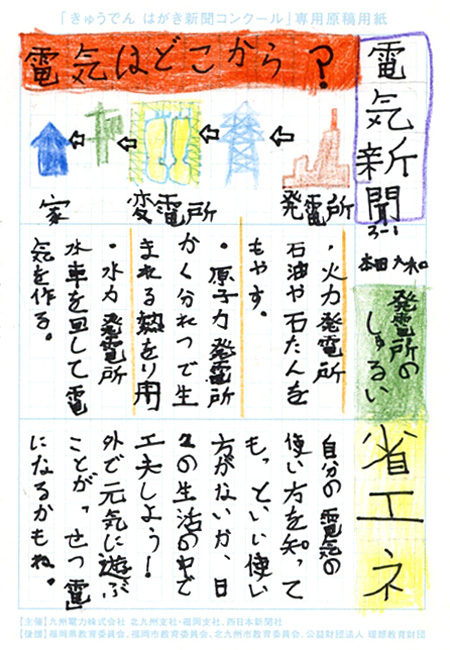 「きゅうでん はがき新聞コンクール」専用原稿用紙
電気新聞
3-1
本田
電気はどこから?
発電所
変電所
家
発電所の
しゅるい
・火力発電所
石油や石たんを
もやす。
・原子力発電所
かく分れつで生
まれる熱をり用
・水力発電所
水車を回して電
気を作る。
省エネ
自分の電気の
使い方を知って
もっといい使い
方がないか、日
々の生活の中で
工夫しよう!
外で元気に遊ぶ
ことが、せつ電
になるかもね。
【主催】九州電力株式会社 北九州支社・福岡支社、西日本新聞社
【後援】福岡県教育委員会、福岡市教育委員会、北九州市教育委員会、公益財団法人 理想教育財団